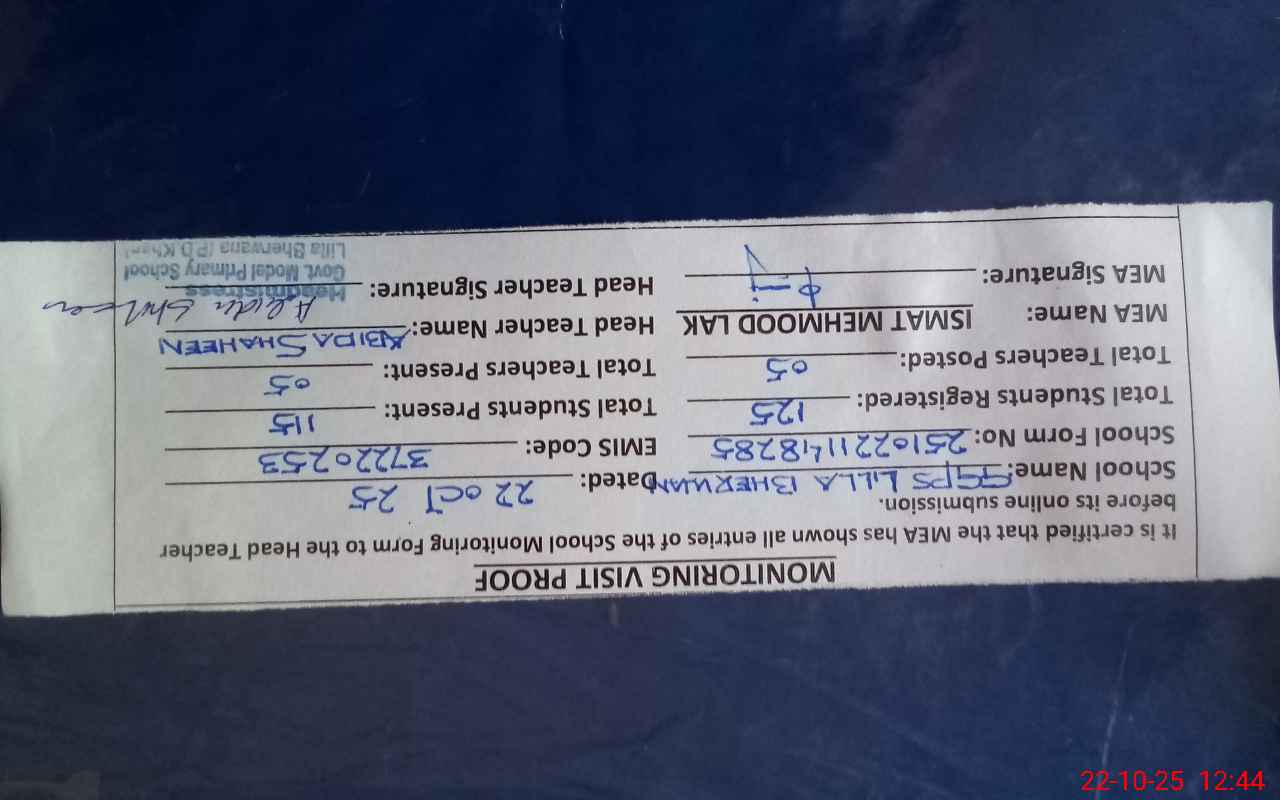 MONITORING VISIT PROOF
It is certified that the MEA has shown all entries of the School Monitoring Form to the Head Teacher
before its online submission.
School Name: GGPS LILLA BHERWAN Dated: 22 OCT 25
School Form No: 2510221148285 EMIS Code: 37220253
Total Students Registered: 125 Total Students Present: 115
Total Teachers Posted: 05 Total Teachers Present: 05
MEA Name: ISMAT MEHMOOD LAK Head Teacher Name: ABIDA SHAHEEN
MEA Signature: Head Teacher Signature: Abida Shaheen
Headmistress
Govt. Model Primary School
Lilla Bherwana (P.D.Khan)
22-10-25 12:44